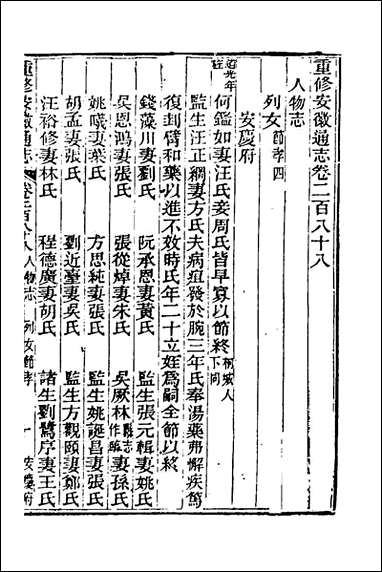 重修安徽通志卷二百八十八
人物志
列女節孝四
安慶府
道光年
旌
何鑑如妻汪氏妾周氏皆早寡以節終桐城人
下同
監生汪正綱妻方氏夫病疽發於腕三年氏奉湯藥弗懈疾篤
復刲臂和藥以進不效時氏年二十立姪爲嗣全節以終
錢藻川妻劉氏 阮承恩妻黃氏 監生張元輯妻姚氏
吳恩鴻妻張氏 張從焯妻朱氏 吳厥林縣志
作臨妻孫氏
姚曦妻葉氏 方思純妻張氏 監生姚誕昌妻張氏
胡孟妻張氏 劉近臺妻吳氏 監生方觀頤妻鄭氏
汪裕修妻林氏 程德廣妻胡氏 諸生劉鷺序妻王氏
重修安徽通志 卷二百八十八 人物志 列女節孝 一 安慶府